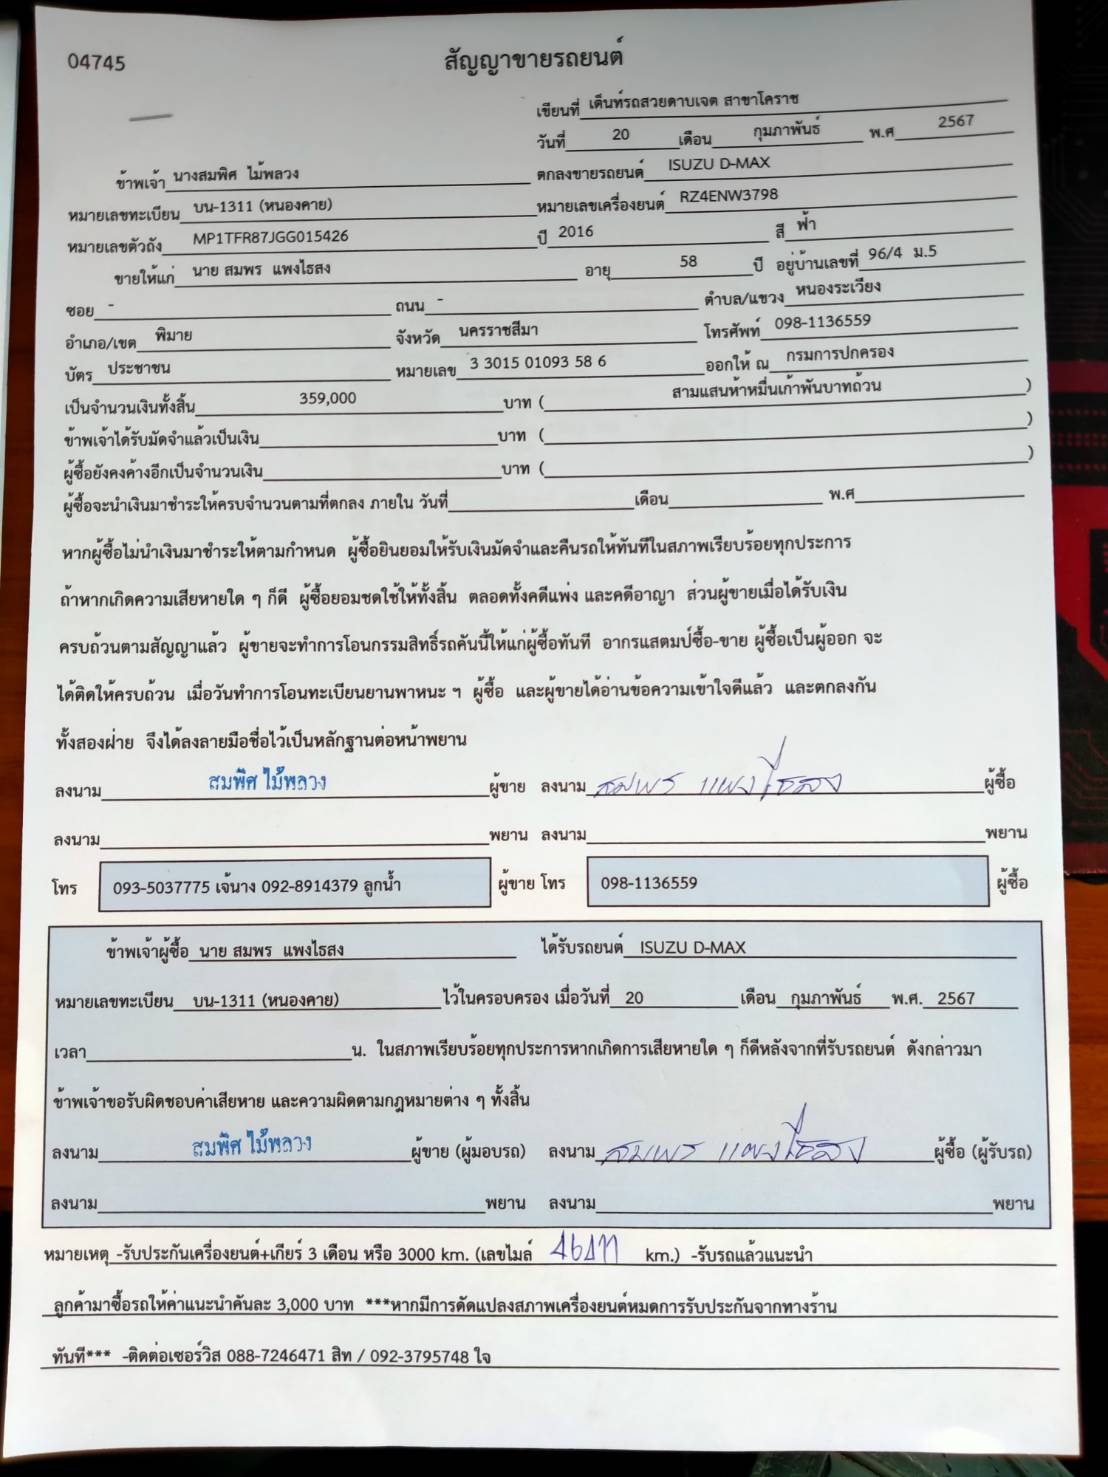 04745
สัญญาขายรถยนต์
เขียนที่ เต็นท์รถสวยดาบเจต สาขาโคราช
วันที่ 20 เดือน กุมภาพันธ์ พ.ศ 2567
ข้าพเจ้า นางสมพิศ ไม้พลวง ตกลงขายรถยนต์ ISUZU D-MAX
หมายเลขทะเบียน บน-1311 (หนองคาย) หมายเลขเครื่องยนต์ RZ4ENW3798
หมายเลขตัวถัง MP1TFR87JGG015426 ปี 2016 สี ฟ้า
ขายให้แก่ นาย สมพร แพงไธสง อายุ 58 ปี อยู่บ้านเลขที่ 96/4 ม.5
ซอย - ถนน - ตำบล/แขวง หนองระเวียง
อำเภอ/เขต พิมาย จังหวัด นครราชสีมา โทรศัพท์ 098-1136559
บัตร ประชาชน หมายเลข 3 3015 01093 58 6 ออกให้ ณ กรมการปกครอง
เป็นจำนวนเงินทั้งสิ้น 359,000 บาท ( สามแสนห้าหมื่นเก้าพันบาทถ้วน )
ข้าพเจ้าได้รับมัดจำแล้วเป็นเงิน บาท ( )
ผู้ซื้อยังคงค้างอีกเป็นจำนวนเงิน บาท ( )
ผู้ซื้อจะนำเงินมาชำระให้ครบจำนวนตามที่ตกลง ภายใน วันที่ เดือน พ.ศ
หากผู้ซื้อไม่นำเงินมาชำระให้ตามกำหนด ผู้ซื้อยินยอมให้รับเงินมัดจำและคืนรถให้ทันทีในสภาพเรียบร้อยทุกประการ
ถ้าหากเกิดความเสียหายใด ๆ ก็ดี ผู้ซื้อยอมชดใช้ให้ทั้งสิ้น ตลอดทั้งคดีแพ่ง และคดีอาญา ส่วนผู้ขายเมื่อได้รับเงิน
ครบถ้วนตามสัญญาแล้ว ผู้ขายจะทำการโอนกรรมสิทธิ์รถคันนี้ให้แก่ผู้ซื้อทันที อากรแสตมป์ซื้อ-ขาย ผู้ซื้อเป็นผู้ออก จะ
ได้ติดให้ครบถ้วน เมื่อวันทำการโอนทะเบียนยานพาหนะ ฯ ผู้ซื้อ และผู้ขายได้อ่านข้อความเข้าใจดีแล้ว และตกลงกัน
ทั้งสองฝ่าย จึงได้ลงลายมือชื่อไว้เป็นหลักฐานต่อหน้าพยาน
ลงนาม สมพิศ ไม้พลวง ผู้ขาย ลงนาม สมพร แพงไธสง ผู้ซื้อ
ลงนาม พยาน ลงนาม พยาน
โทร 093-5037775 เจ้นาง 092-8914379 ลูกน้ำ ผู้ขาย โทร 098-1136559 ผู้ซื้อ
ข้าพเจ้าผู้ซื้อ นาย สมพร แพงไธสง ได้รับรถยนต์ ISUZU D-MAX
หมายเลขทะเบียน บน-1311 (หนองคาย) ไว้ในครอบครอง เมื่อวันที่ 20 เดือน กุมภาพันธ์ พ.ศ. 2567
เวลา น. ในสภาพเรียบร้อยทุกประการหากเกิดการเสียหายใด ๆ ก็ดีหลังจากที่รับรถยนต์ ดังกล่าวมา
ข้าพเจ้าขอรับผิดชอบค่าเสียหาย และความผิดตามกฎหมายต่าง ๆ ทั้งสิ้น
ลงนาม สมพิศ ไม้พลวง ผู้ขาย (ผู้มอบรถ) ลงนาม สมพร แพงไธสง ผู้ซื้อ (ผู้รับรถ)
ลงนาม พยาน ลงนาม พยาน
หมายเหตุ -รับประกันเครื่องยนต์+เกียร์ 3 เดือน หรือ 3000 km. (เลขไมล์ km.) -รับรถแล้วแนะนำ
ลูกค้ามาซื้อรถให้ค่าแนะนำคันละ 3,000 บาท ***หากมีการดัดแปลงสภาพเครื่องยนต์หมดการรับประกันจากทางร้าน
ทันที*** -ติดต่อเซอร์วิส 088-7246471 สิท / 092-3795748 ใจ